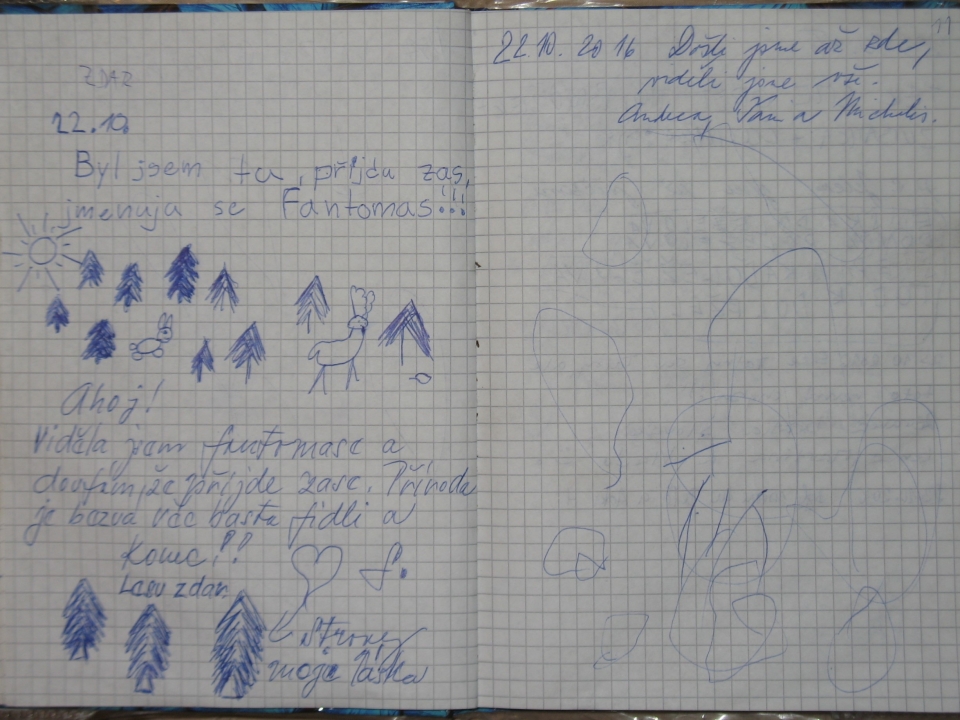 ZDAR
22.10.
Byl jsem tu, příjdu zas,
jmenuju se Fantomas!!!
Ahoj!
Viděla jsem fantomase a
doufám, že příjde zase. Příroda
je bezva věc basta fidli a
konec!!
Lesu zdar
S.
Stromy
moje láska
11
22.10.2016 Došli jsme až sde,
viděli jsme vše.
Andrea, a Michelis.